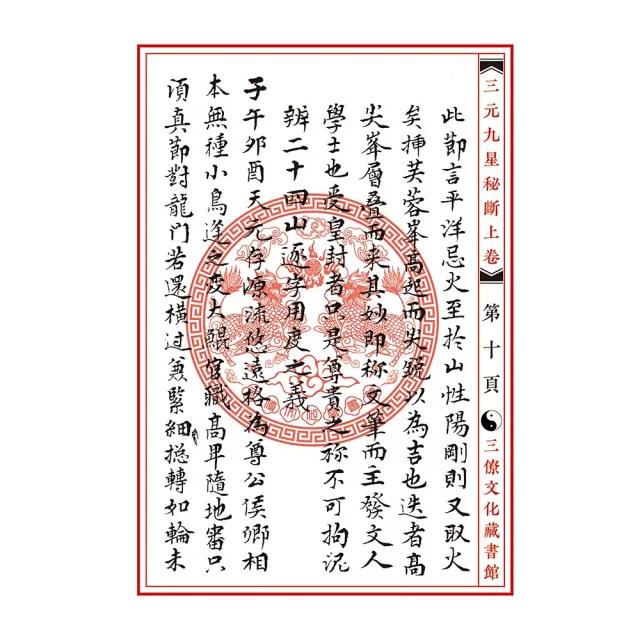 三元九星秘斷上卷
第十頁
三僚文化藏書館
此節言平洋忌火至於山性陽剛則又取火
矣挿芙蓉峯高起而尖銳以為吉也迭者高
尖峯層叠而来其妙即称文筆而主發文人
學士也受皇封者只是尊貴之称不可拘泥
辨二十四山逐字用度之義
子午卯酉天元存源流悠遠格為尊公侯卿相
本無種小鳥逢之变大鯤官職高卑隨地審只
項真節對龍門若還橫过兼緊細摠轉如輪未